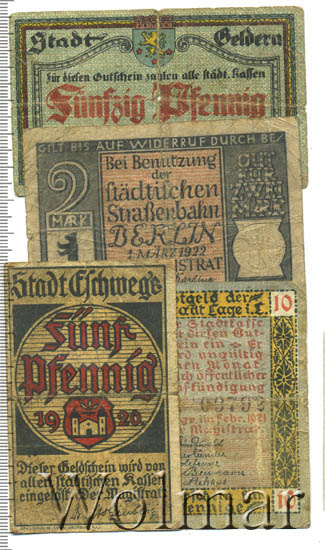 Stadt Geldern
Für diesen Gutschein zahlen alle städt. Kassen
Fünfzig Pfennig
GILT BIS AUF WIDERRUF DURCH BE
2
MARK
Bei Benutzung
der
städtischen
Straßenbahn
BERLIN
1. MÄRZ 1922
ISTRAT
Stadt Eschwege
Fünf
Pfennig
1920
Dieser Geldschein wird von
allen städtischen Kassen
eingelöst. Der Magistrat
tgeld der
adt Lage i.L.
10
Stadtkasse
diesen Gut
ein Er
ungültig
Monat
öffentliche
fkündigung
im Febr. 1921
Magistrat
10
Wolmar